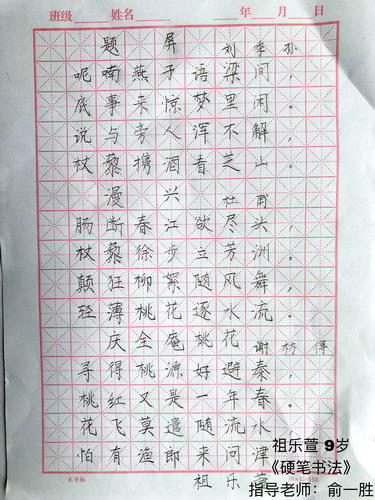 班级 姓名 年 月 日
题 屏 刘季孙
呢喃燕子语梁间，
底事来惊梦里闲。
说与旁人浑不解，
杖藜携酒看芝山。
漫 兴 杜甫
肠断春江欲尽头，
杖藜徐步立芳洲。
颠狂柳絮随风舞，
轻薄桃花逐水流。
庆全庵桃花 谢枋得
寻得桃源好避秦，
桃红又是一年春。
花飞莫遣随流水
怕有渔郎来问津
祖乐萱
祖乐萱 9岁
《硬笔书法》
指导老师：俞一胜